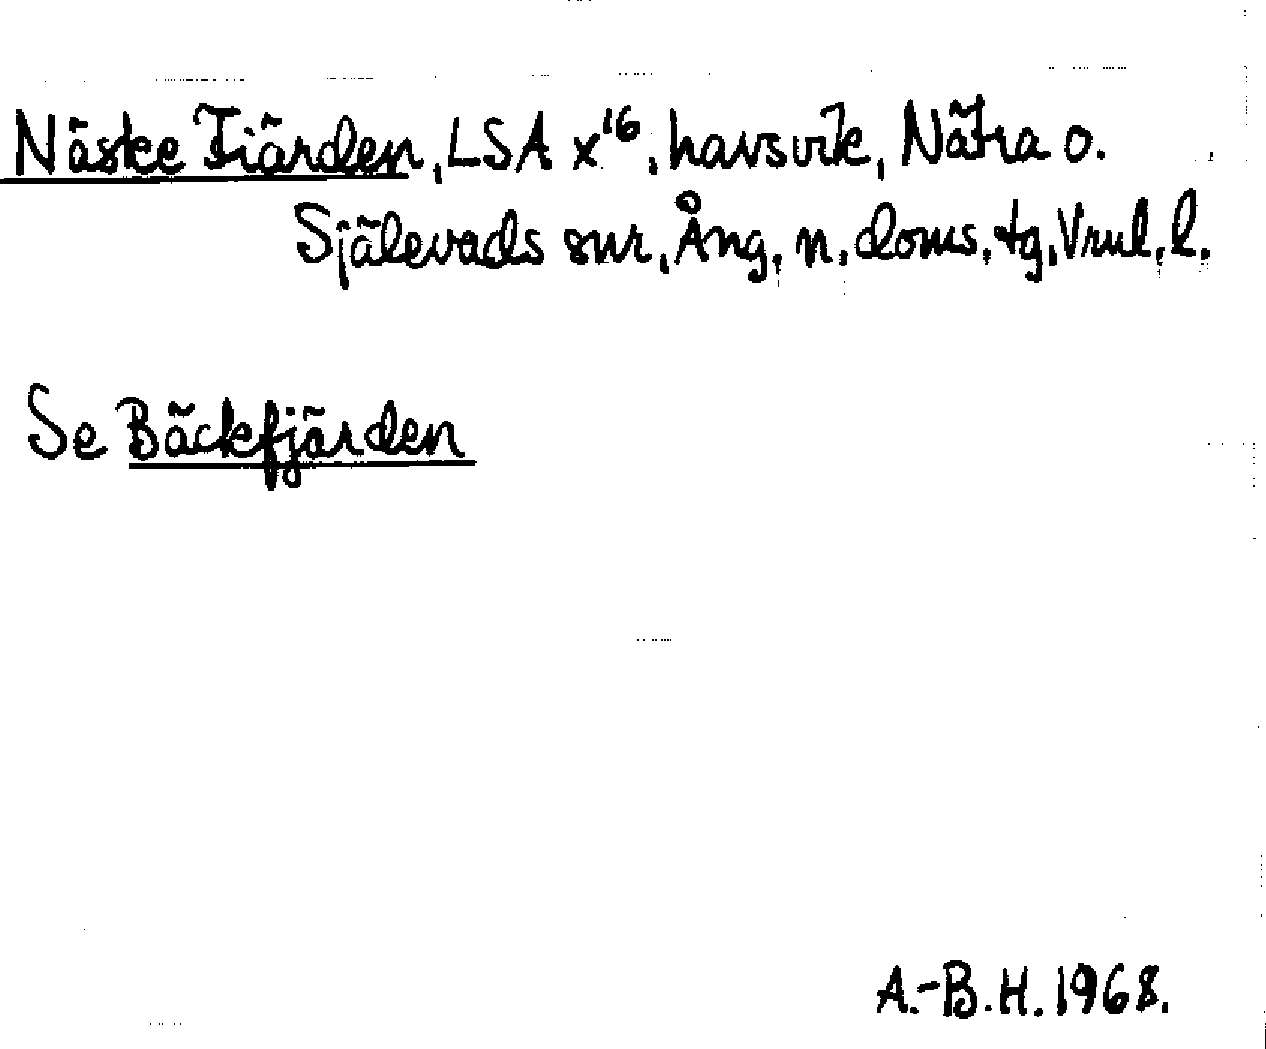 Näske Fiärden, LSA x¹⁶, havsvik, Nätra o.
Själevads snr, Ång. n. doms. tg, Vrnl. l.
Se Bäckfjärden
A.-B.H. 1968.